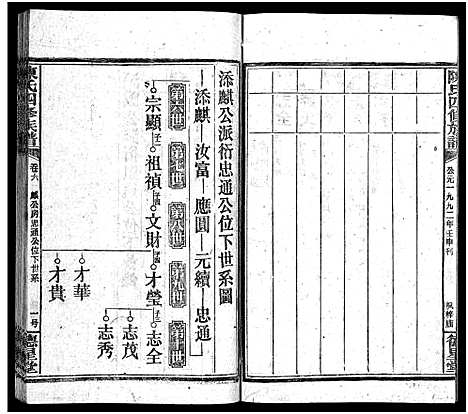 陳氏四修族譜
公元一九九二年壬申刊
德星堂
添麒公派衍忠通公位下世系圖
添麒—汝富—應圓—元續—忠通
第十六世
第十七世
第十八世
第十九世
第二十世
宗顯 子一
祖禎 子一
文財 子三
才瑩 子三
志全
志茂
志秀
才華
才貴
陳氏四修族譜
卷六
麒公房忠通公位下世系
一号
德星堂